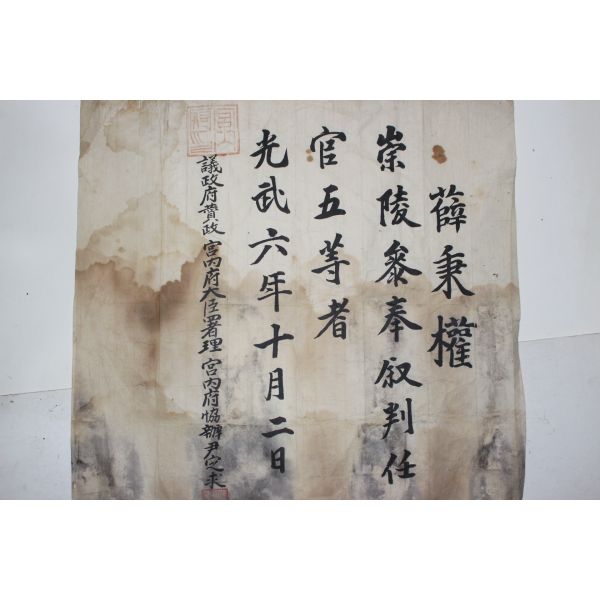 薛秉權
崇陵參奉叙判任
官五等者
光武六年十月二日
議政府贊政宮內府大臣署理宮內府協辦尹定求